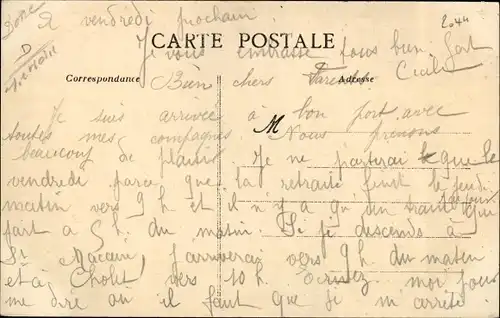 à vendredi prochain.
Je vous embrasse tous bien fort
Cécile
2044
D
CARTE POSTALE
Correspondance
Adresse
Bien chers Parents
Je suis arrivée à bon port avec
toutes mes compagnes
M
Nous prenons
beaucoup de plaisir
Je ne partirai que le
vendredi parce que la retraite finit le jeudi
matin vers 9 h et il n'y a qu'un train
par jour qui
part à 5 h. du matin. Si je descends à
St Macaire, j'arriverai vers 9 h. du matin
et à Cholet vers 10 h. Écrivez moi pour
me dire où il faut que je m'arrête.